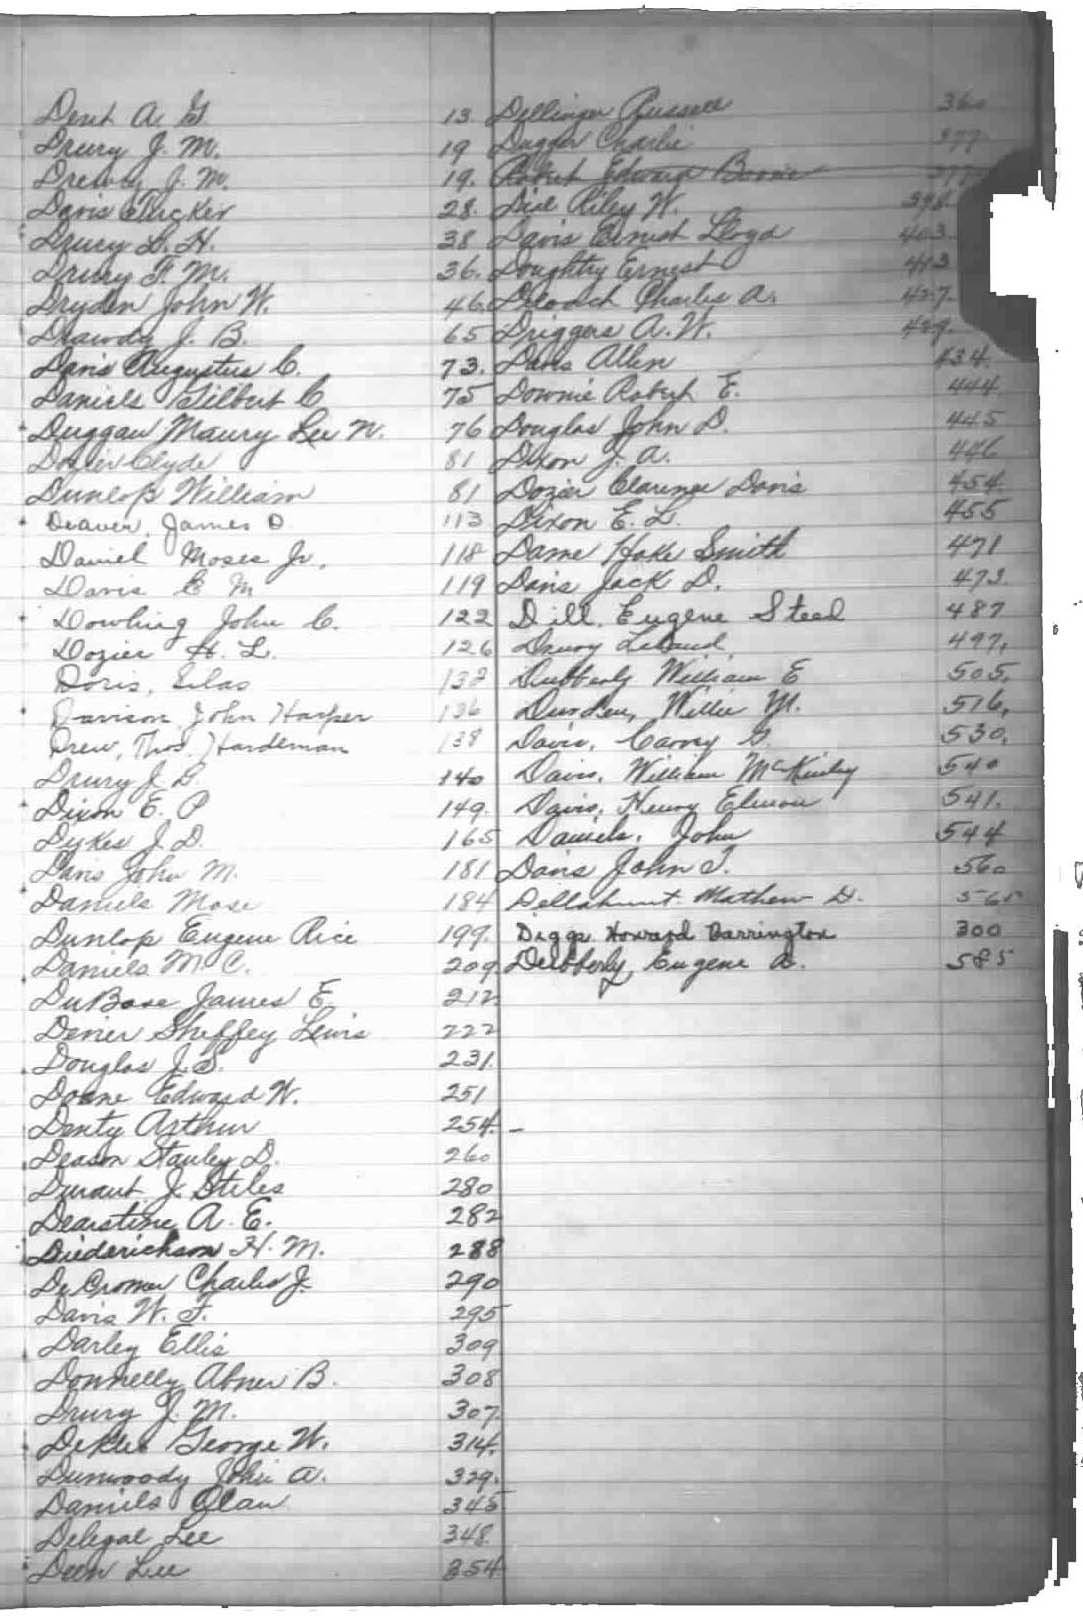 Dent A. G. 13
Drury J. M. 19
Drewby J. M. 19.
Davis Tucker 28.
Drury L. H. 38
Drury F. M. 36.
Dryden John W. 46.
Drawdy J. B. 65
Davis Augustus C. 73.
Daniels Gilbert C 75
Duggan Maury Lee N. 76
Dozier Clyde 81
Dunlop William 81
Deaver, James O. 113
Daniel Moses Jr. 118
Davis C M 119
Dowling John C. 122
Dozier H. L. 126
Doris, Silas 132
Davison John Harper 136
Drew, Thos. Hardeman 138
Drury J. D. 140
Dixon E. P 149.
Dykes J. D. 165
Davis John M. 181
Daniels Mose 184
Dunlop Eugene Rice 199.
Daniels M. C. 209
DuBose James E. 212
Denier Sheffey Lewis 222
Douglas J. S. 231.
Doane Edward W. 251
Denty Arthur 254.
Deason Stanley D. 260
Durant J. Stiles 280
Dearstine A. E. 282
Diederickson H. M. 288
DeCromer Charles J. 290
Davis W. F. 295
Darley Ellis 309
Donnelly Abner B. 308
Drury J. M. 307
Dekle George W. 314.
Dunwoody John A. 329.
Daniels Olan 345
Delegal Lee 348.
Deen Lee 354
Dellinger Russell 360
Dugger Charlie 377
Robert Edward Boone 377
Dial Riley W. 398.
Davis Ernest Lloyd 403.
Doughtry Ernest 413
DeLoach Charles A. 427.
Driggers A. W. 429.
Davis Allen 434.
Downie Robert E. 444
Douglas John D. 445
Dixon J. A. 446
Dozier Clarence Davis 454
Dixon E. L. 455
Dame Hoke Smith 471
Davis Jack D. 473.
Dill, Eugene Steed 487
Drury Leland, 497.
Dubberly William E 505.
Durden, Willie M. 516.
Davis, Carey G. 530.
Davis, William McKinley 540
Davis, Henry Elmon 541.
Daniels, John 544
Davis John T. 560
Dellahunt Mathew D. 565
Diggs Howard Barrington 300
Dubberly, Eugene A. 585